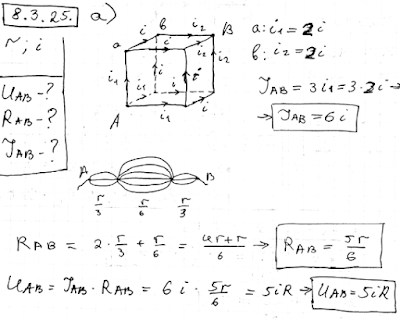 8.3.25. a)
~; i
U_AB - ?
R_AB - ?
J_AB - ?
a b i i₂ B
i₁ i i i₂
A i₁ i
a: i₁ = 2i
b: i₂ = 2i
J_AB = 3i₁ = 3·2i →
→ J_AB = 6i
A B
r/3 r/6 r/3
R_AB = 2·r/3 + r/6 = (4r+r)/6 → R_AB = 5r/6
U_AB = J_AB · R_AB = 6i · 5r/6 = 5iR → U_AB = 5iR